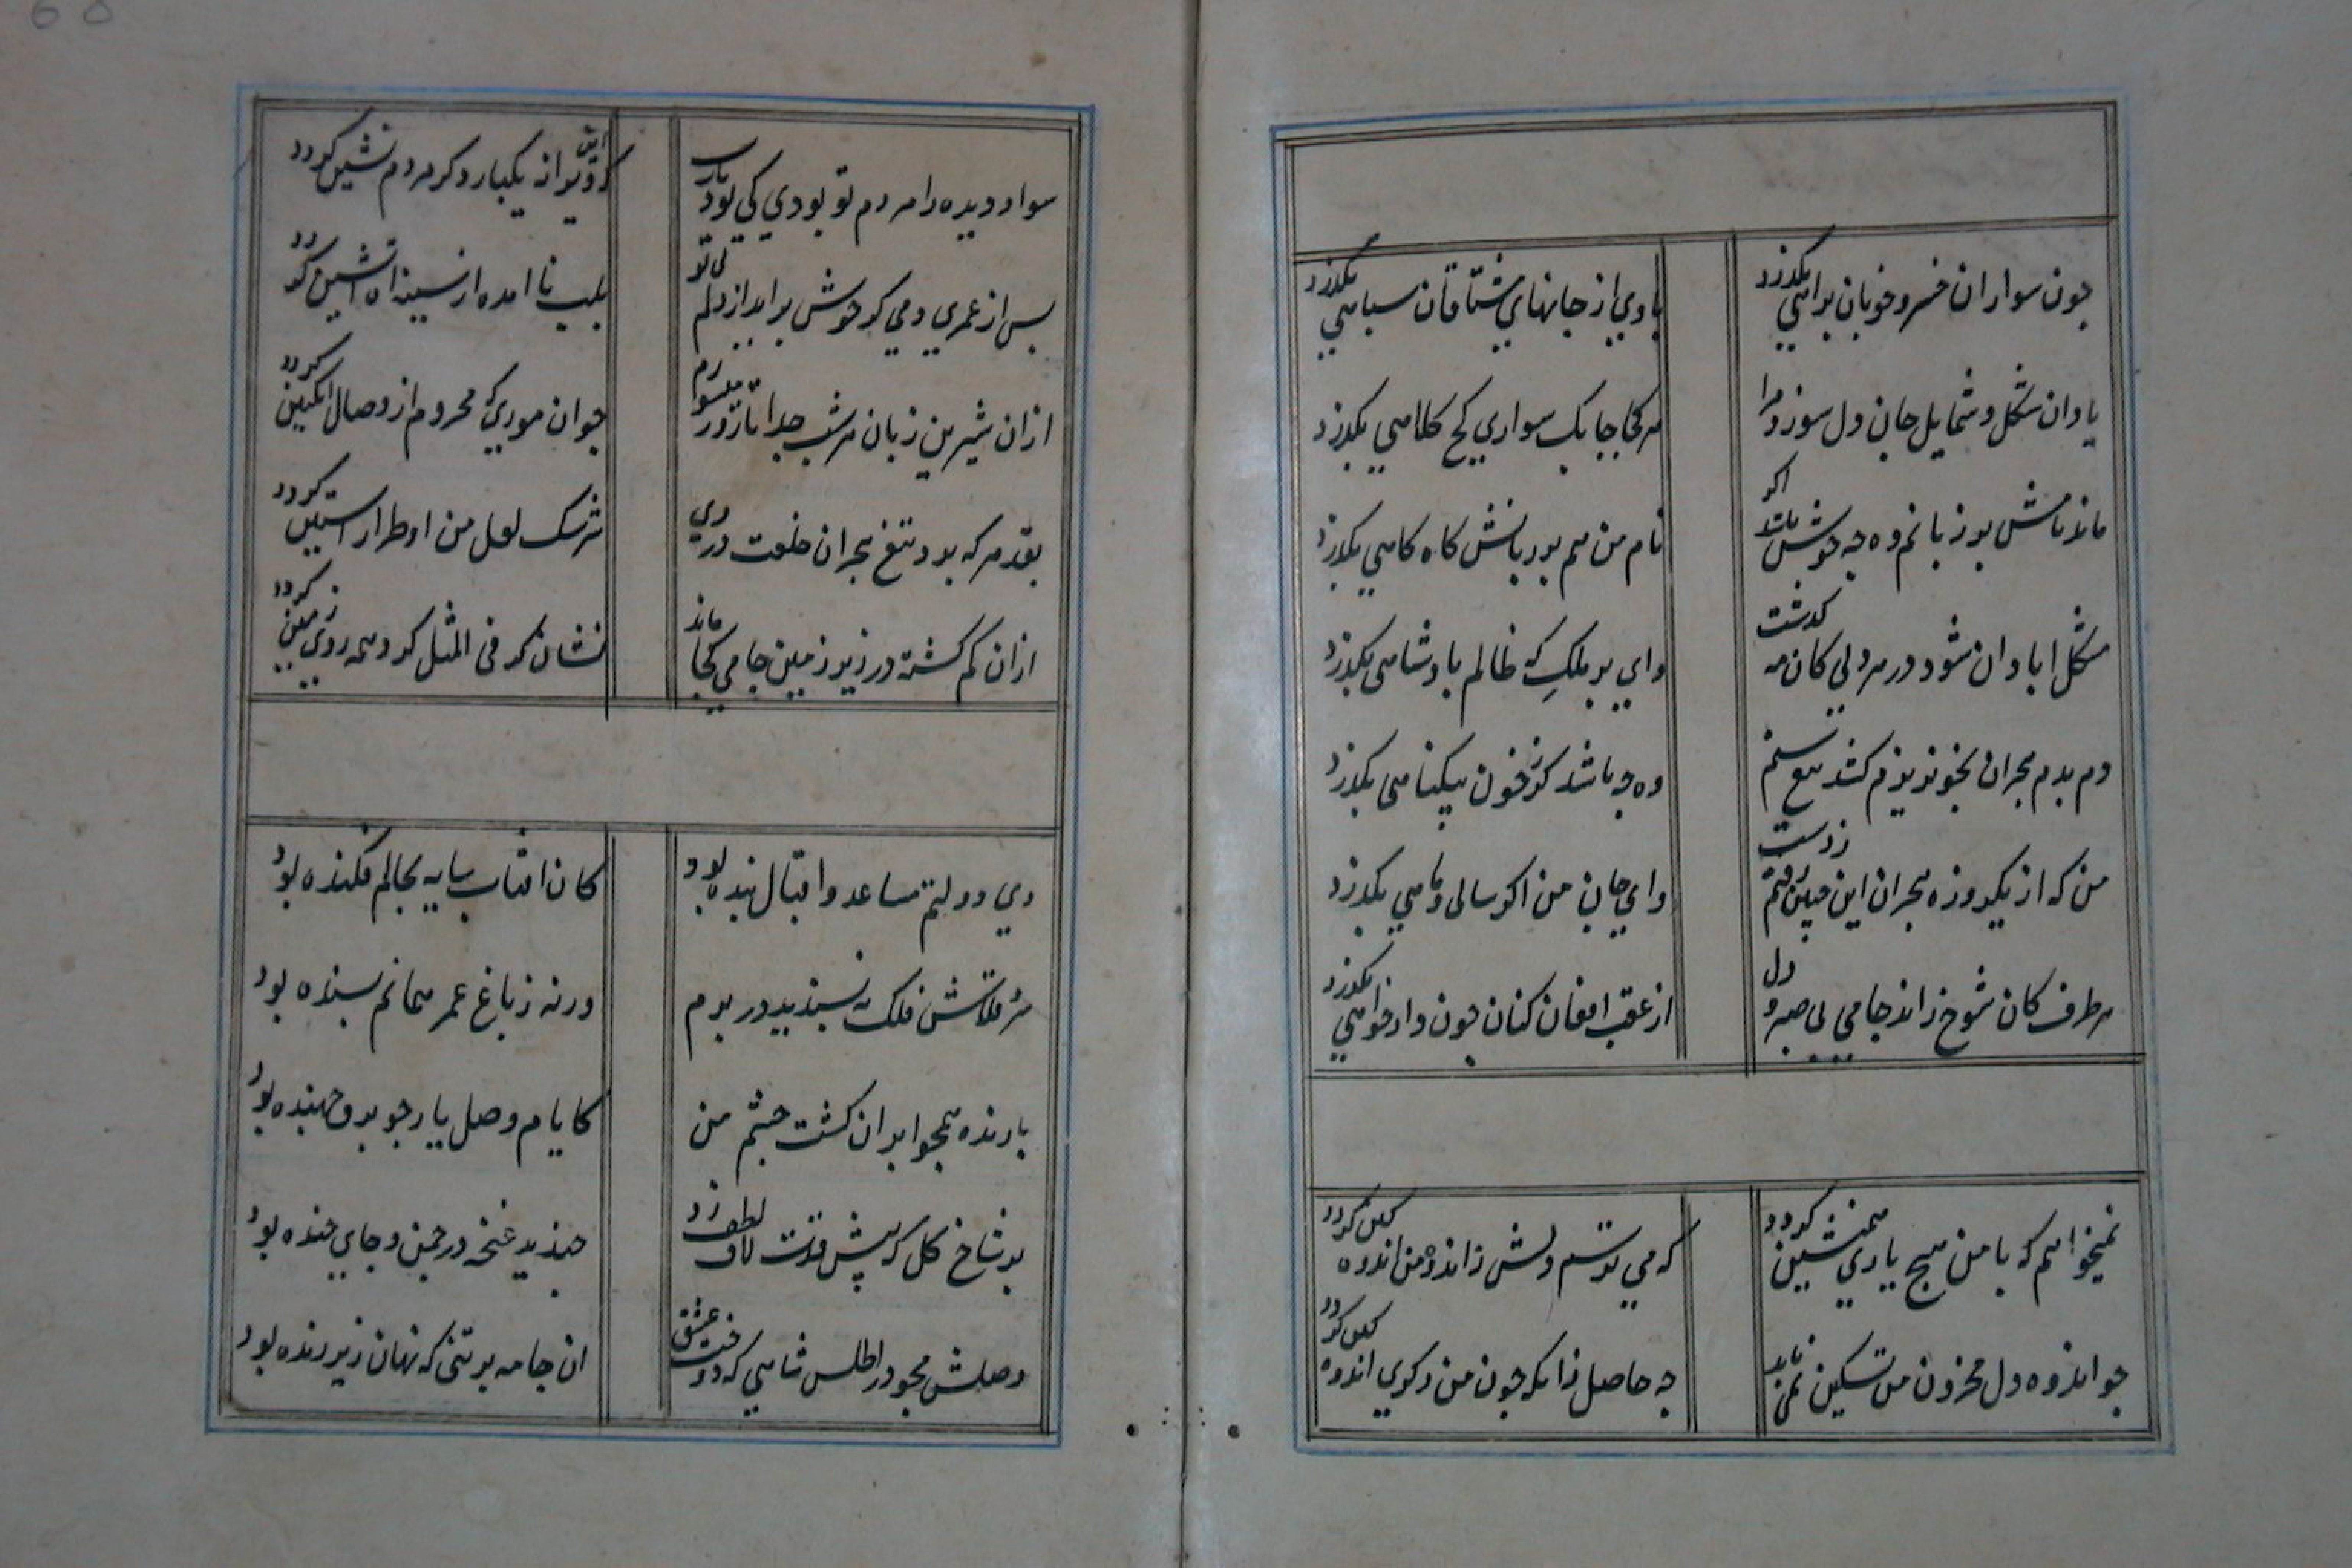 چون سواران خسرو خوبان براهی بگذرد
یا وی از جانهای مشتاقان سپاهی بگذرد
یاد ان شکل و شمایل جان و دل سوزد مرا
هر کجا چابک سواری کج کلاهی بگذرد
ماند نامش بر زبانم وه چه خوش باشد اکر
نام من هم بر زبانش کاه کاهی بگذرد
مشکل ابادان شود در هر دلی کان مه کذشت
وای بر ملک که ظالم پادشاهی بگذرد
دم بدم هجران بخونریزم کشد تیغ ستم
وه چه باشد کر ز خون بیکناهی بگذرد
من که از یکروزه هجران این چنین رفتم ز دست
وای جان من اکر سالی و ماهی بگذرد
هر طرف کان شوخ راند جامی بی صبر و دل
از عقب افغان کنان چون دادخواهی بگذرد
نمیخواهم که با من هیچ یاری همنشین کردد
که می ترسم دلش ز اندوه من اندوهکین کردد
چو اندوه دل محزون من تسکین نمی یابد
چه حاصل زانکه چون من دیکری اندوهکین کردد
سواد دیده را مردم تو بودی کی بود یارب
که این ویرانه یکبار دکر مردم نشین کردد
پس از عمری دمی کر خوش براید از دلم بی تو
بلب نا امده از سینه اه اتشین کردد
ازان شیرین زبان هر شب جدا تا روز میسوزم
چو ان موری که محروم از وصال انکبین کردد
بقد هر که برد تیغ هجران خلعت دردی
سرشک لعل من او طراز استین کردد
ازان کم کشته در زیر زمین جامی کجا ماند
نشان کر فی المثل کرد همه روی زمین کردد
دی دولتم مساعد و اقبال بنده بود
کان افتاب سایه بحالم فکنده بود
سرو قدش فلک نپسندید در برم
ورنه ز باغ عمر همانم بسنده بود
بارنده همچو ابر ازان کشت چشم من
کایام وصل یار چو برق جهنده بود
بر شاخ کل که پیش قدت لاف لطف زد
خندید غنچه در چمن و جای خنده بود
وصلش مجو در اطلس شاهی که دوخت عشق
ان جامه بر تنی که نهان زیر ژنده بود